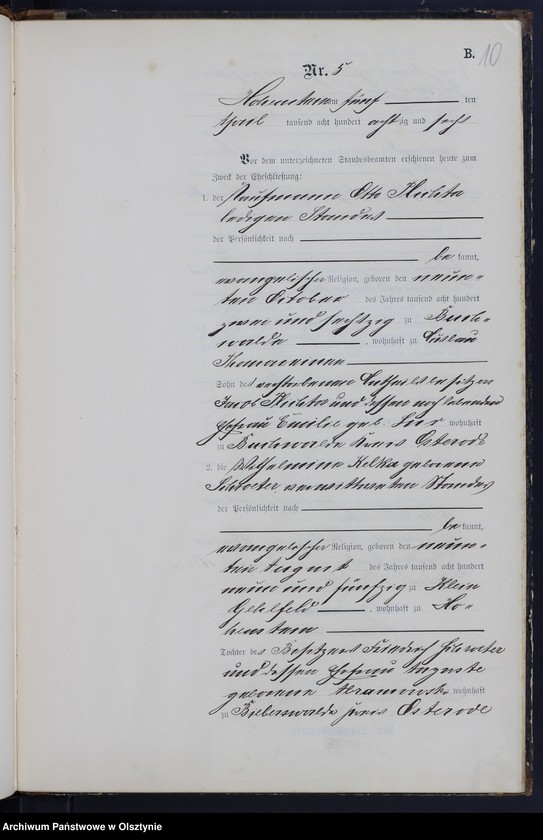 B. 10
Nr. 5
Hohenstein am fünf ten
April tausend acht hundert achtzig und sechs
Vor dem unterzeichneten Standesbeamten erschienen heute zum
Zweck der Eheschließung:
1. der Kaufmann Otto
ledigen Standes
der Persönlichkeit nach
be kannt,
evangelischer Religion, geboren den neun-
ten October des Jahres tausend acht hundert
zwei und sechzig zu Buch-
walde, wohnhaft zu

Sohn des verstorbenen besitzers
Jacob und dessen noch lebenden
Ehefrau Emilie geb. wohnhaft
zu Buchwalde Kreis Osterode
2. die Wilhelmine Kelka geborene
Schroeter, verwittweten Standes
der Persönlichkeit nach
be kannt,
evangelischer Religion, geboren den neun-
ten August des Jahres tausend acht hundert
neun und fünfzig zu Klein
, wohnhaft zu Ho-
henstein
Tochter des Besitzers Friedrich Schroeter
und dessen Ehefrau Auguste
geborene wohnhaft
zu Kreis Osterode
Archiwum Państwowe w Olsztynie